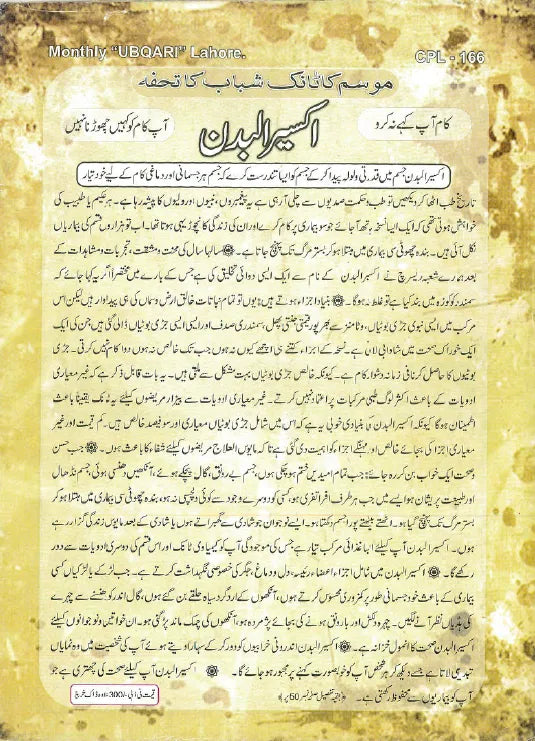 Monthly "UBQARI" Lahore.
CPL - 166
موسم کا ٹانک شباب کا تحفہ
کام آپ کہے نہ کرو
اکسیر البدن
آپ کام کو کہیں چھوڑنا نہیں
اکسیر البدن جسم میں قدرتی ولولہ پیدا کر کے جسم کو ایسا تندرست کرے کہ جسم ہر جسمانی اور دماغی کام کے لیے خود تیار
تاریخ طب اٹھا کر دیکھیں تو طب و حکمت صدیوں سے چلی آ رہی ہے یہ پیغمبروں، نبیوں اور ولیوں کا پیشہ رہا ہے۔ ہر حکیم یا طبیب کی
خواہش ہوتی تھی کہ ایک ایسا نسخہ ہاتھ آ جائے جو سو بیماری پر کام کرے اور ان کی زندگی کا نچوڑ یہی ہوتا تھا۔ اب تو ہزاروں قسم کی بیماریاں
نکل آئی ہیں۔ بندہ چھوٹی سی بیماری میں مبتلا ہو کر بستر مرگ تک پہنچ جاتا ہے۔ سالہا سال کی محنت و مشقت، تجربات و مشاہدات کے
بعد ہمارے شعبہ ریسرچ نے اکسیر البدن کے نام سے ایک ایسی دوائی تخلیق کی ہے جس کے بارے میں مختصراً اگر یہ کہا جائے کہ
سمندر کو کوزہ میں بند کیا ہے تو غلط نہ ہوگا۔ بنیاد اجزاء ہوتے ہیں: یوں تو تمام نباتات خالق ارض و سماں کی ہی پیداوار ہیں لیکن اس
مرکب میں ایسی نبوی جڑی بوٹیاں، وٹامنز سے بھرپور قیمتی جنتی پھل، سمندری صدف اور ایسی ایسی جڑی بوٹیاں ڈالی گئی ہیں جن کی ایک
ایک خوراک صحت میں شادابی لاتی ہے۔ نسخہ کے اجزاء کتنے ہی اچھے کیوں نہ ہوں جب تک خالص نہ ہوں دوا کام نہیں کرتی۔ جڑی
بوٹیوں کا حاصل کرنا فی زمانہ دشوار کام ہے۔ کیونکہ خالص جڑی بوٹیاں بہت مشکل سے ملتی ہیں۔ یہ بات قابل ذکر ہے کہ غیر معیاری
ادویات کے باعث اکثر لوگ طبی مرکبات پر اعتماد نہیں کرتے۔ غیر معیاری ادویات سے بیزار مریضوں کیلئے یہ ٹانک یقیناً باعث
اطمینان ہوگا کیونکہ اکسیر البدن کی بنیادی خوبی یہ ہے کہ اس میں شامل جڑی بوٹیاں معیاری اور سو فیصد خالص ہیں۔ کم قیمت اور غیر
معیاری اجزا کی بجائے خالص اور مہنگے اجزا کو اہمیت دی گئی ہے تاکہ مایوس العلاج مریضوں کیلئے شفاء کا باعث ہوں۔ جب حسن
و صحت ایک خواب بن کر رہ جائے: جب تمام امیدیں ختم ہو چکی ہوں، جسم بے رونق، گال پچکے ہوئے، آنکھیں دھنسی ہوئی جسم نڈھال
اور طبیعت پریشان ہو ایسے میں جب ہر طرف افراتفری ہو، کسی کو دوسرے وجود سے کوئی دلچسپی نہ ہو، بندہ چھوٹی سی بیماری میں مبتلا ہو کر
بستر مرگ تک پہنچ گیا ہو۔ اٹھتے بیٹھتے پورا جسم دکھتا ہو۔ ایسے نوجوان جو شادی سے گھبراتے ہوں یا شادی کے بعد مایوس زندگی گزار رہے
ہوں۔ اکسیر البدن آپ کیلئے ایسا غذائی مرکب تیار ہے جس کی موجودگی آپ کو کیمیاوی ٹانک اور اس قسم کی دوسری ادویات سے دور
رکھے گا۔ اکسیر البدن میں شامل اجزاء اعضاء رئیسہ، دل و دماغ، جگر کی خصوصی نگہداشت کرتے ہیں۔ جب لڑکے یا لڑکیاں کسی
بیماری کے باعث خود جسمانی طور پر کمزوری محسوس کرتے ہوں، آنکھوں کے ارد گرد سیاہ حلقے بن گئے ہوں، گال اندر کو دھنسے سے چہرے
کی ہڈیاں نظر آنے لگیں۔ چہرہ دلکش اور بارونق ہونے کی بجائے پژمردہ ہو، آنکھوں کی چمک ماند پڑ گئی ہو۔ ان خواتین و نوجوانوں کیلئے
اکسیر البدن صحت کا انمول خزانہ ہے۔ اکسیر البدن اندرونی خرابیوں کو دور کر کے سہارا دیتے ہوئے آپ کی شخصیت میں وہ نمایاں
تبدیلی لاتا ہے جسے دیکھ کر ہر شخص آپ کو خوبصورت کہنے پر مجبور ہو جائے گا۔ اکسیر البدن آپ کیلئے صحت کی چھتری ہے جو
آپ کو بیماریوں سے محفوظ رکھتی ہے۔ (بقیہ تفصیل صفحہ نمبر 60 پر)
قیمت فی ڈبی -/300 علاوہ ڈاک خرچ